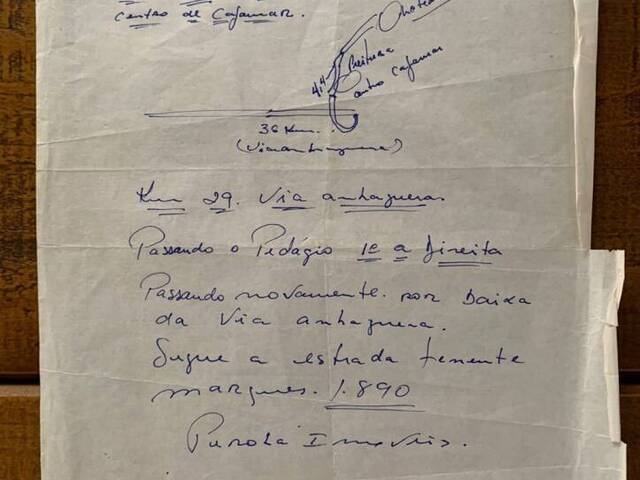 Centro de Cajamar.
4.4
Prefeitura
centro Cajamar
36 Km.
(Via anhanguera)
Km 29. Via anhaguera.
Passando o Pedágio 1ª a Direita
Passando novamente por Baixa
da Via anhaguera.
Segue a estrada tenente
marques. 1.890